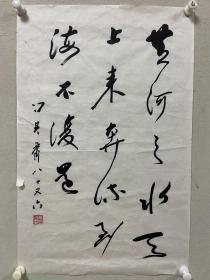 黄河之水天
上来奔流到
海不复还
八十又六